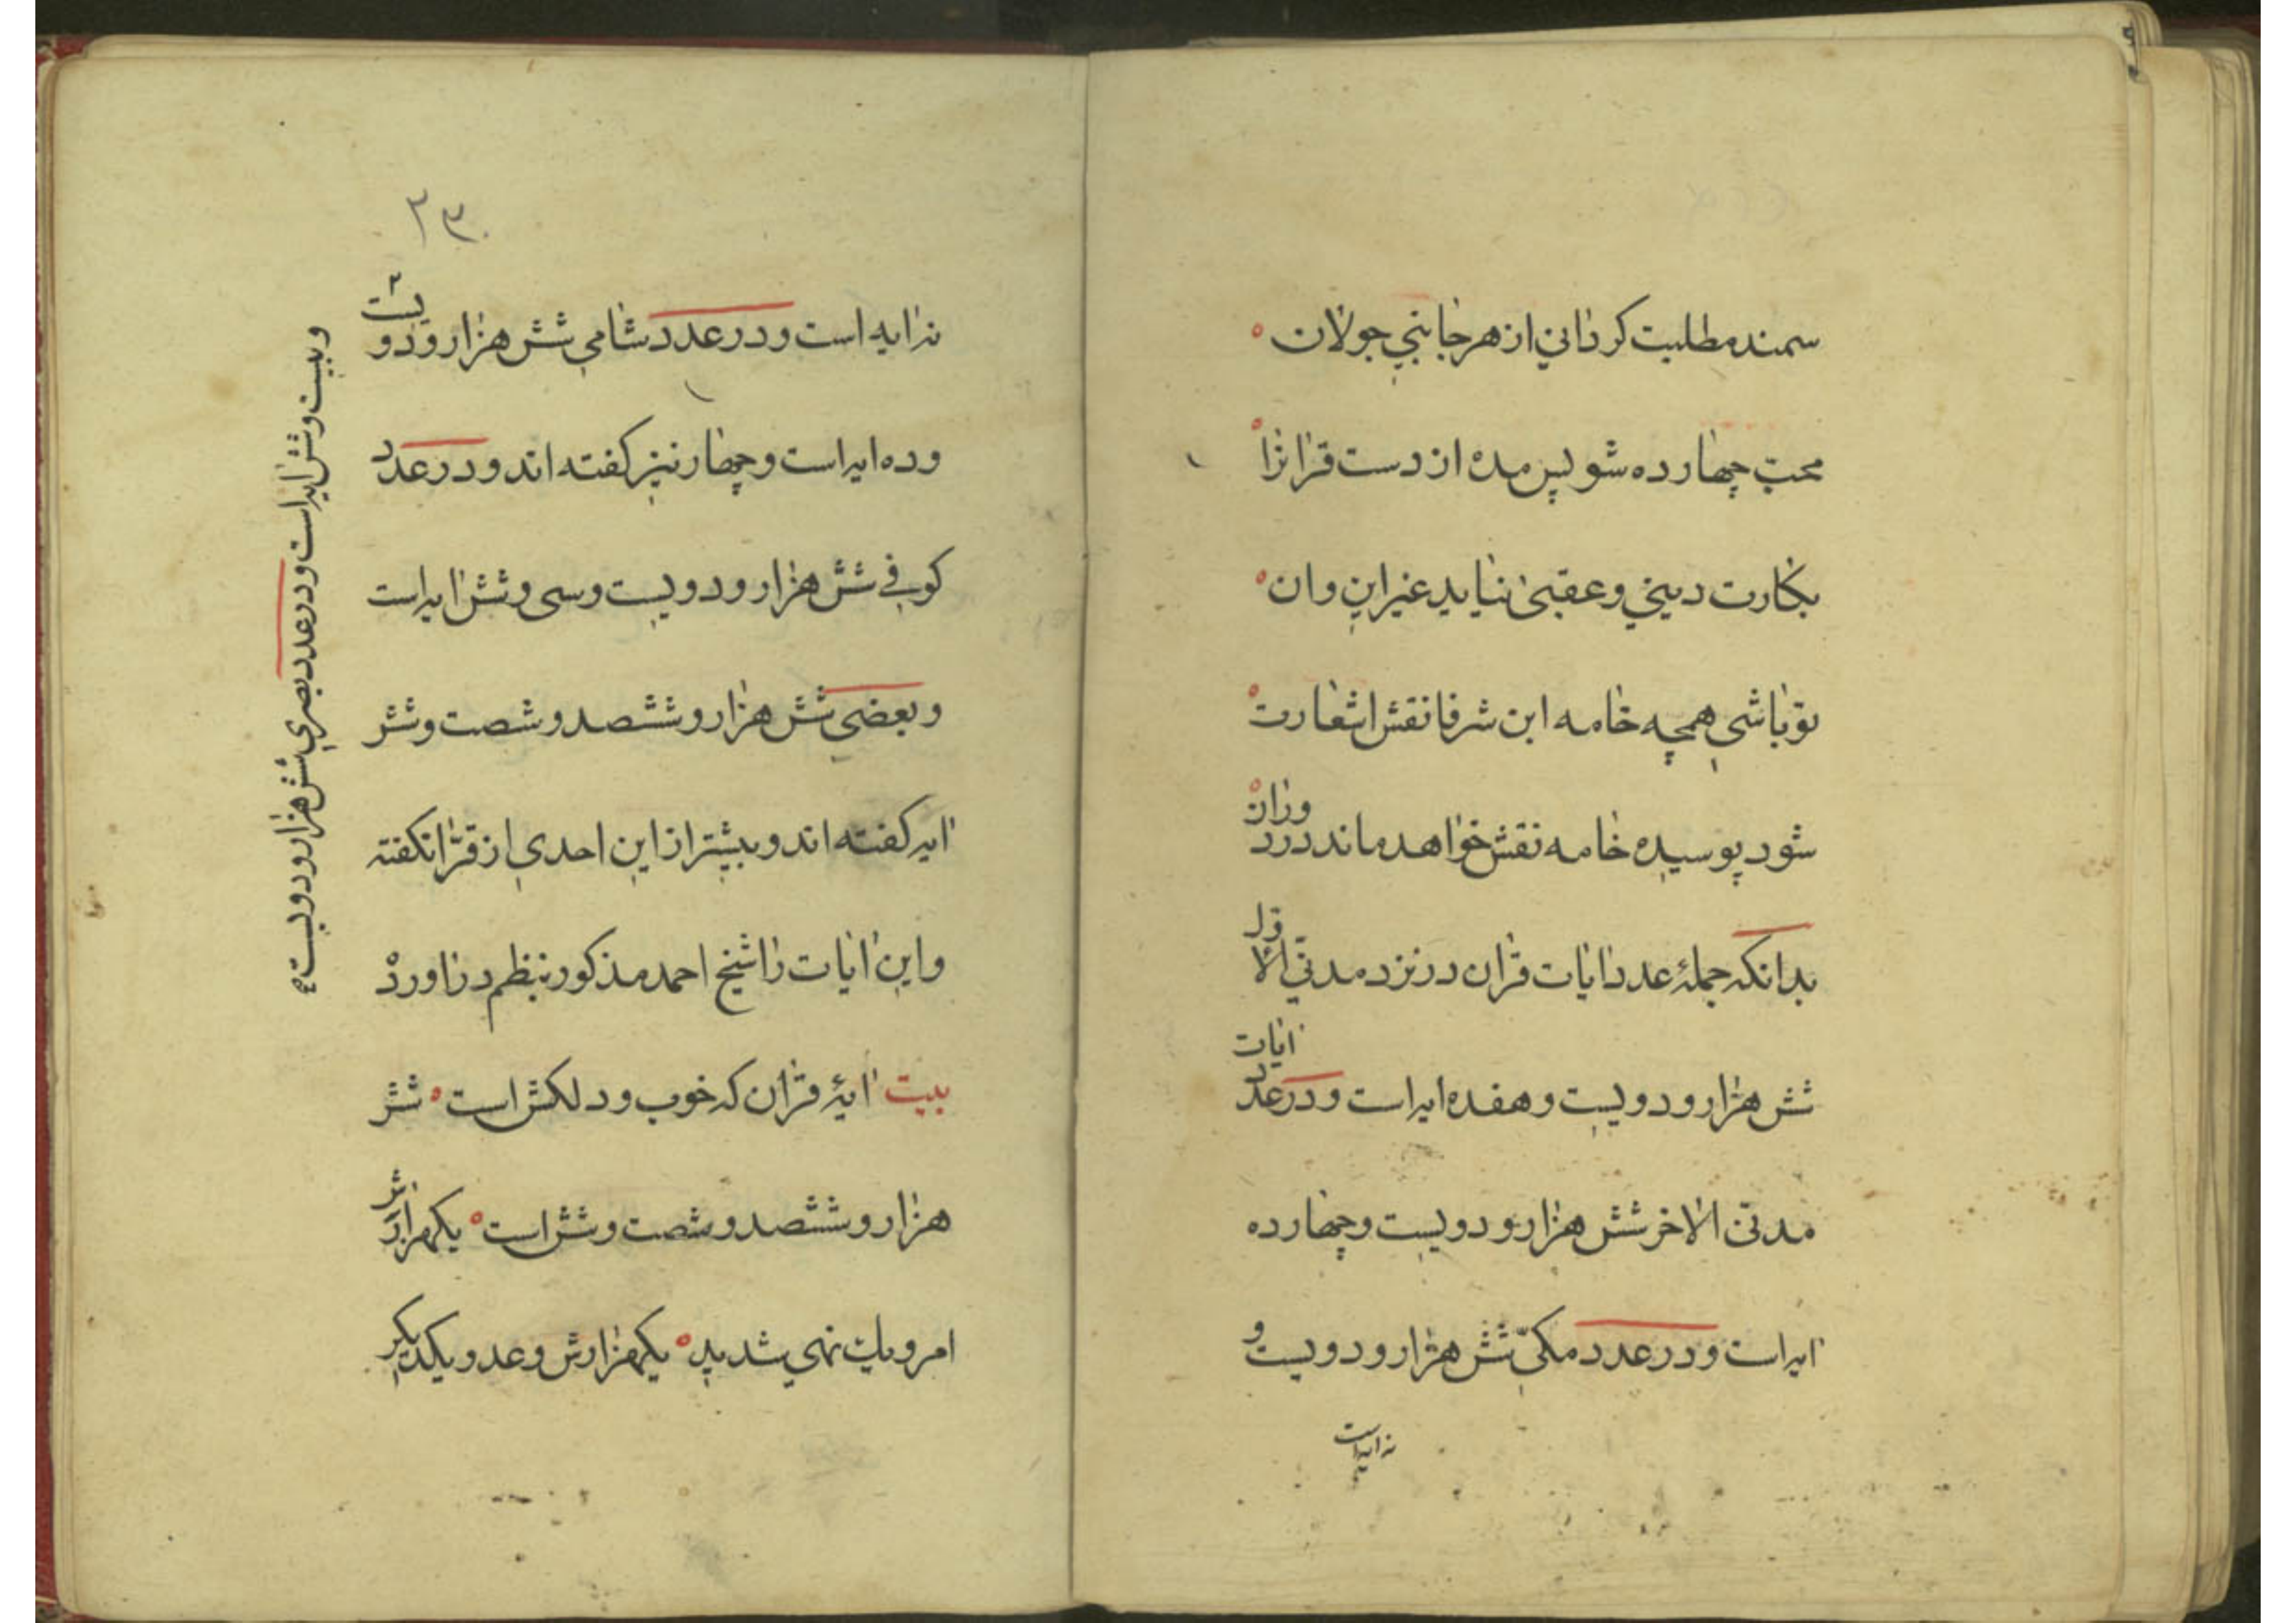 سمند مطلبت کردانی از هر جانبی جولان
محب چهارده شو پس مده از دست قرانرا
بکارت دینی و عقبی نیاید غیر این وان
تو باشی همچه خامه این شرفا نقش اشعارت
شود پوسیده خامه نقش خواهد ماند در دوران
بدانکه جملۀ عدد ایات قران در نزد مدنی الاول
شش هزار و دویست و هفده ایه است و در عدد ایات
مدنی الاخر شش هزار و دویست و چهارده
ایه است و در عدد مکی شش هزار و دویست و
نه ایه است
۲۳۰
نه ایه است و در عدد شامی شش هزار و دویست
و بیست و شش ایه است و در عدد بصری شش هزار و دویست
وده ایه است و چهار نیز کفته اند و در عدد
کوفی شش هزار و دویست و سی و شش ایه است
و بعضی شش هزار و ششصد و شصت و شش
ایه کفته اند و بیشتر از این احدی از قرا نکفته
و این ایات را شیخ احمد مذکور بنظم در اورد
بیت ایۀ قران که خوب و دلکش است شش
هزار و ششصد و شصت و شش است یکهزار
امر و یک نهی شدید یکهزارش وعد و یک دیکر